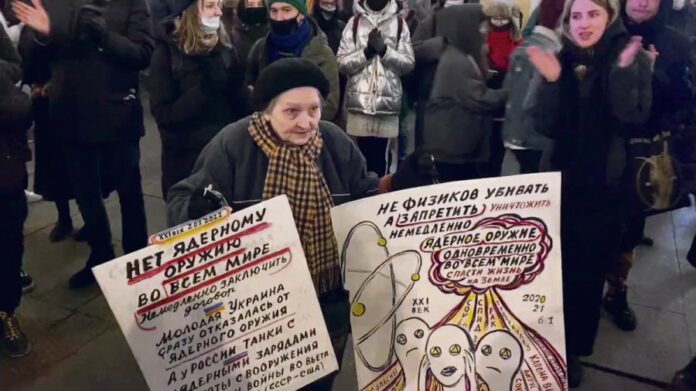 XXI ВЕК 2 03 2022
НЕТ ЯДЕРНОМУ
ОРУЖИЮ
ВО ВСЕМ МИРЕ
НЕМЕДЛЕННО ЗАКЛЮЧИТЬ
ДОГОВОР
МОЛОДАЯ УКРАИНА
СРАЗУ ОТКАЗАЛАСЬ ОТ
ЯДЕРНОГО ОРУЖИЯ
А У РОССИИ ТАНКИ С
ЯДЕРНЫМИ ЗАРЯДАМИ
С ВООРУЖЕНИЯ
ВОЙНЫ ВО ВЬЕТА
(СССР-США)
НЕ ФИЗИКОВ УБИВАТЬ
А (ЗАПРЕТИТЬ) УНИЧТОЖИТЬ
НЕМЕДЛЕННО
ЯДЕРНОЕ ОРУЖИЕ
ОДНОВРЕМЕННО
ВО ВСЕМ МИРЕ
СПАСТИ ЖИЗНЬ
НА ЗЕМЛЕ
XXI
ВЕК
2020
21